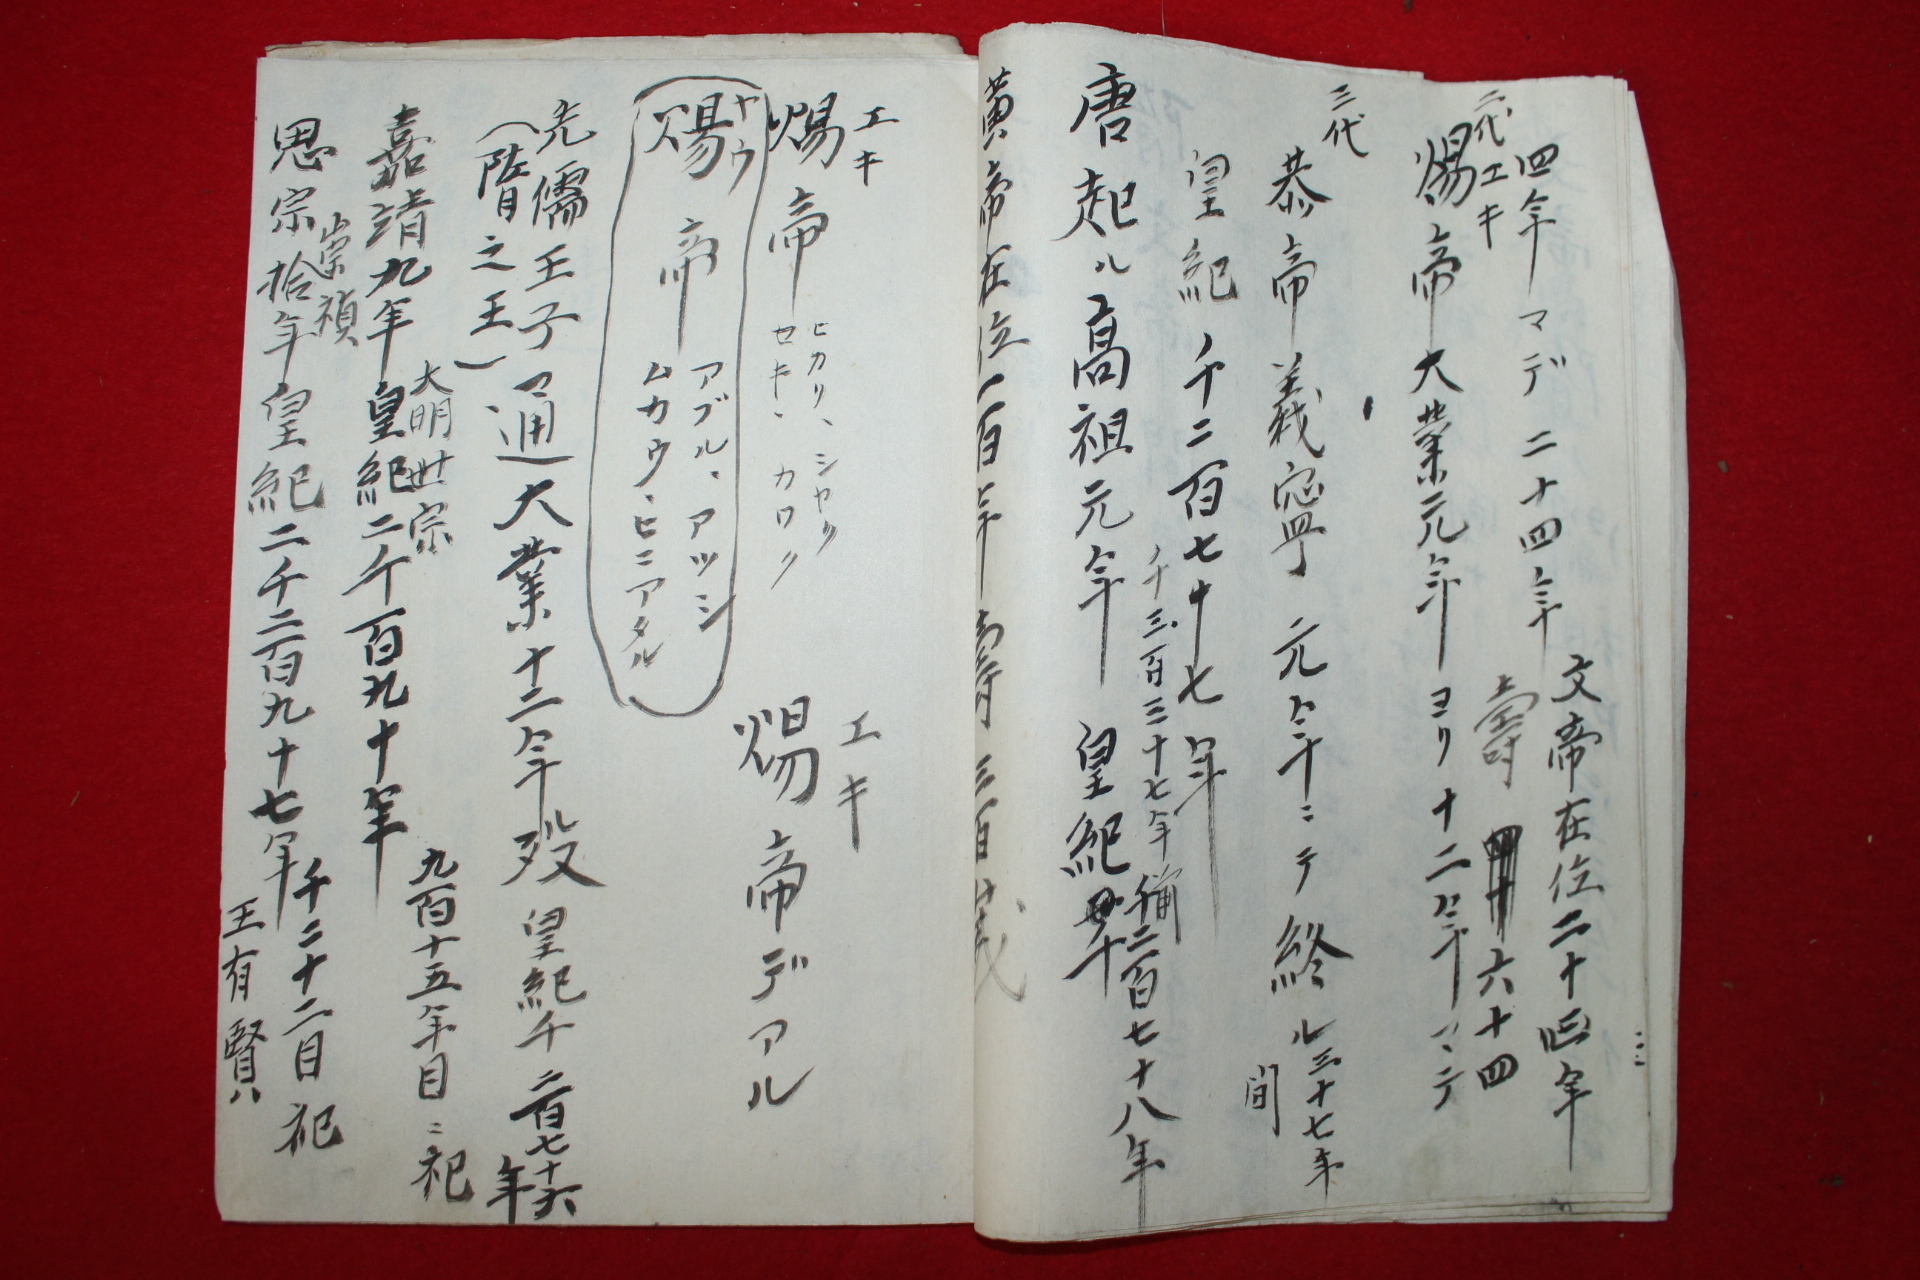 四年マデ二十四年
文帝在位二十四年
壽六十四
二代
エキ
煬帝大業元年ヨリ十二年マデ
三代
恭帝義寧元年ニテ終ル三十七年
間
皇紀千二百七十七年
千三百三十七年
唐起ル高祖元年 皇紀
千二百七十八年
黄帝在位一百年壽三百歳
エキ
煬帝
ヒカリ、シヤク
セキ、カワク
エキ
煬帝デアル
ヤウ
煬帝
アブル、アツシ
ムカウ、ヒニアタル
先儒王子
(隋之王)
通大業十二年歿皇紀千二百七十六年
大明世宗
嘉靖九年皇紀二千百九十年
九百十五年目ニ祀
崇禎
思宗拾年皇紀二千二百九十七年
千二十二目祀
王有賢ハ